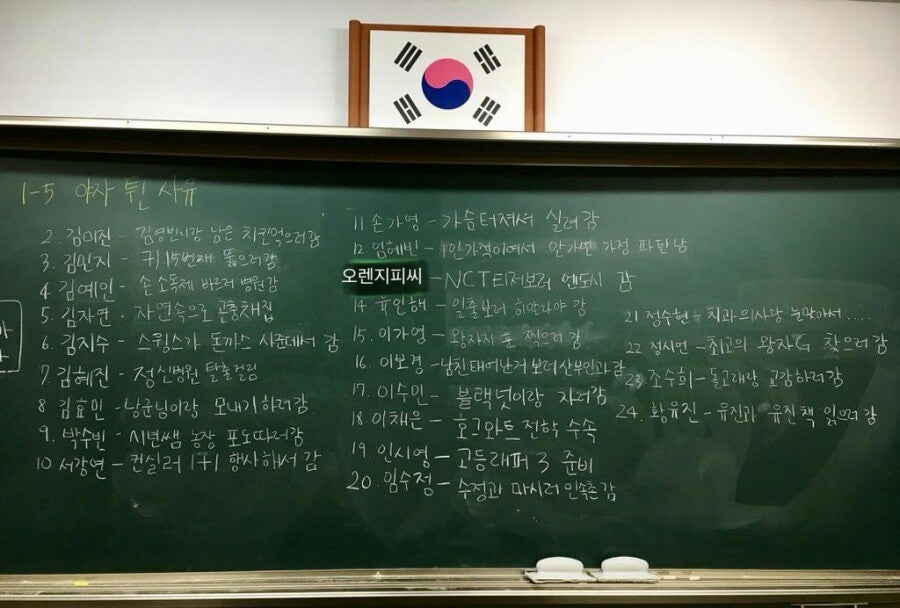 1-5 야자 튄 사유
2. 김미진 - 김영빈이랑 남은 치킨먹으러감
3. 김민지 - 귀 15번째 뚫으러감
4. 김예인 - 손 소독제 바르러 병원감
5. 김자연 - 자연속으로 곤충채집
6. 김지수 - 스윙스가 돈까스 사준데서 감
7. 김혜진 - 정신병원 탈출걸림
8 김효민 - 낭군님이랑 모내기하러감
9. 박수빈 - 시년쌤 농장 포도따러감
10 서강연 - 컨실러 1+1 행사해서 감
11 손가영 - 가슴터져서 실려감
12. 엄혜빈 - 1인가정이여서 안가면 가정 파탄남
오렌지피씨 - NCT티저보러 맨도시 감
14 육인해 - 일출보러 히말라야 감
15. 이가영 - 왕자지 훈 찾으러 감
16. 이보경 - 남친 태어난거 보러 산부인과 감
17. 이수민 - 블랙넛이랑 자러감
18 이채은 - 호그와트 전학 수속
19 인시영 - 고등래퍼3 준비
20. 임수정 - 수정과 마시러 민속촌감
21 정수현 - 치과의사랑 눈맞아서....
22 정시연 - 최고의 왕자님 찾으러 감
23 조수희 - 돌고래랑 교감하러감
24. 황유진 - 유진과 유진 책 읽으러 감